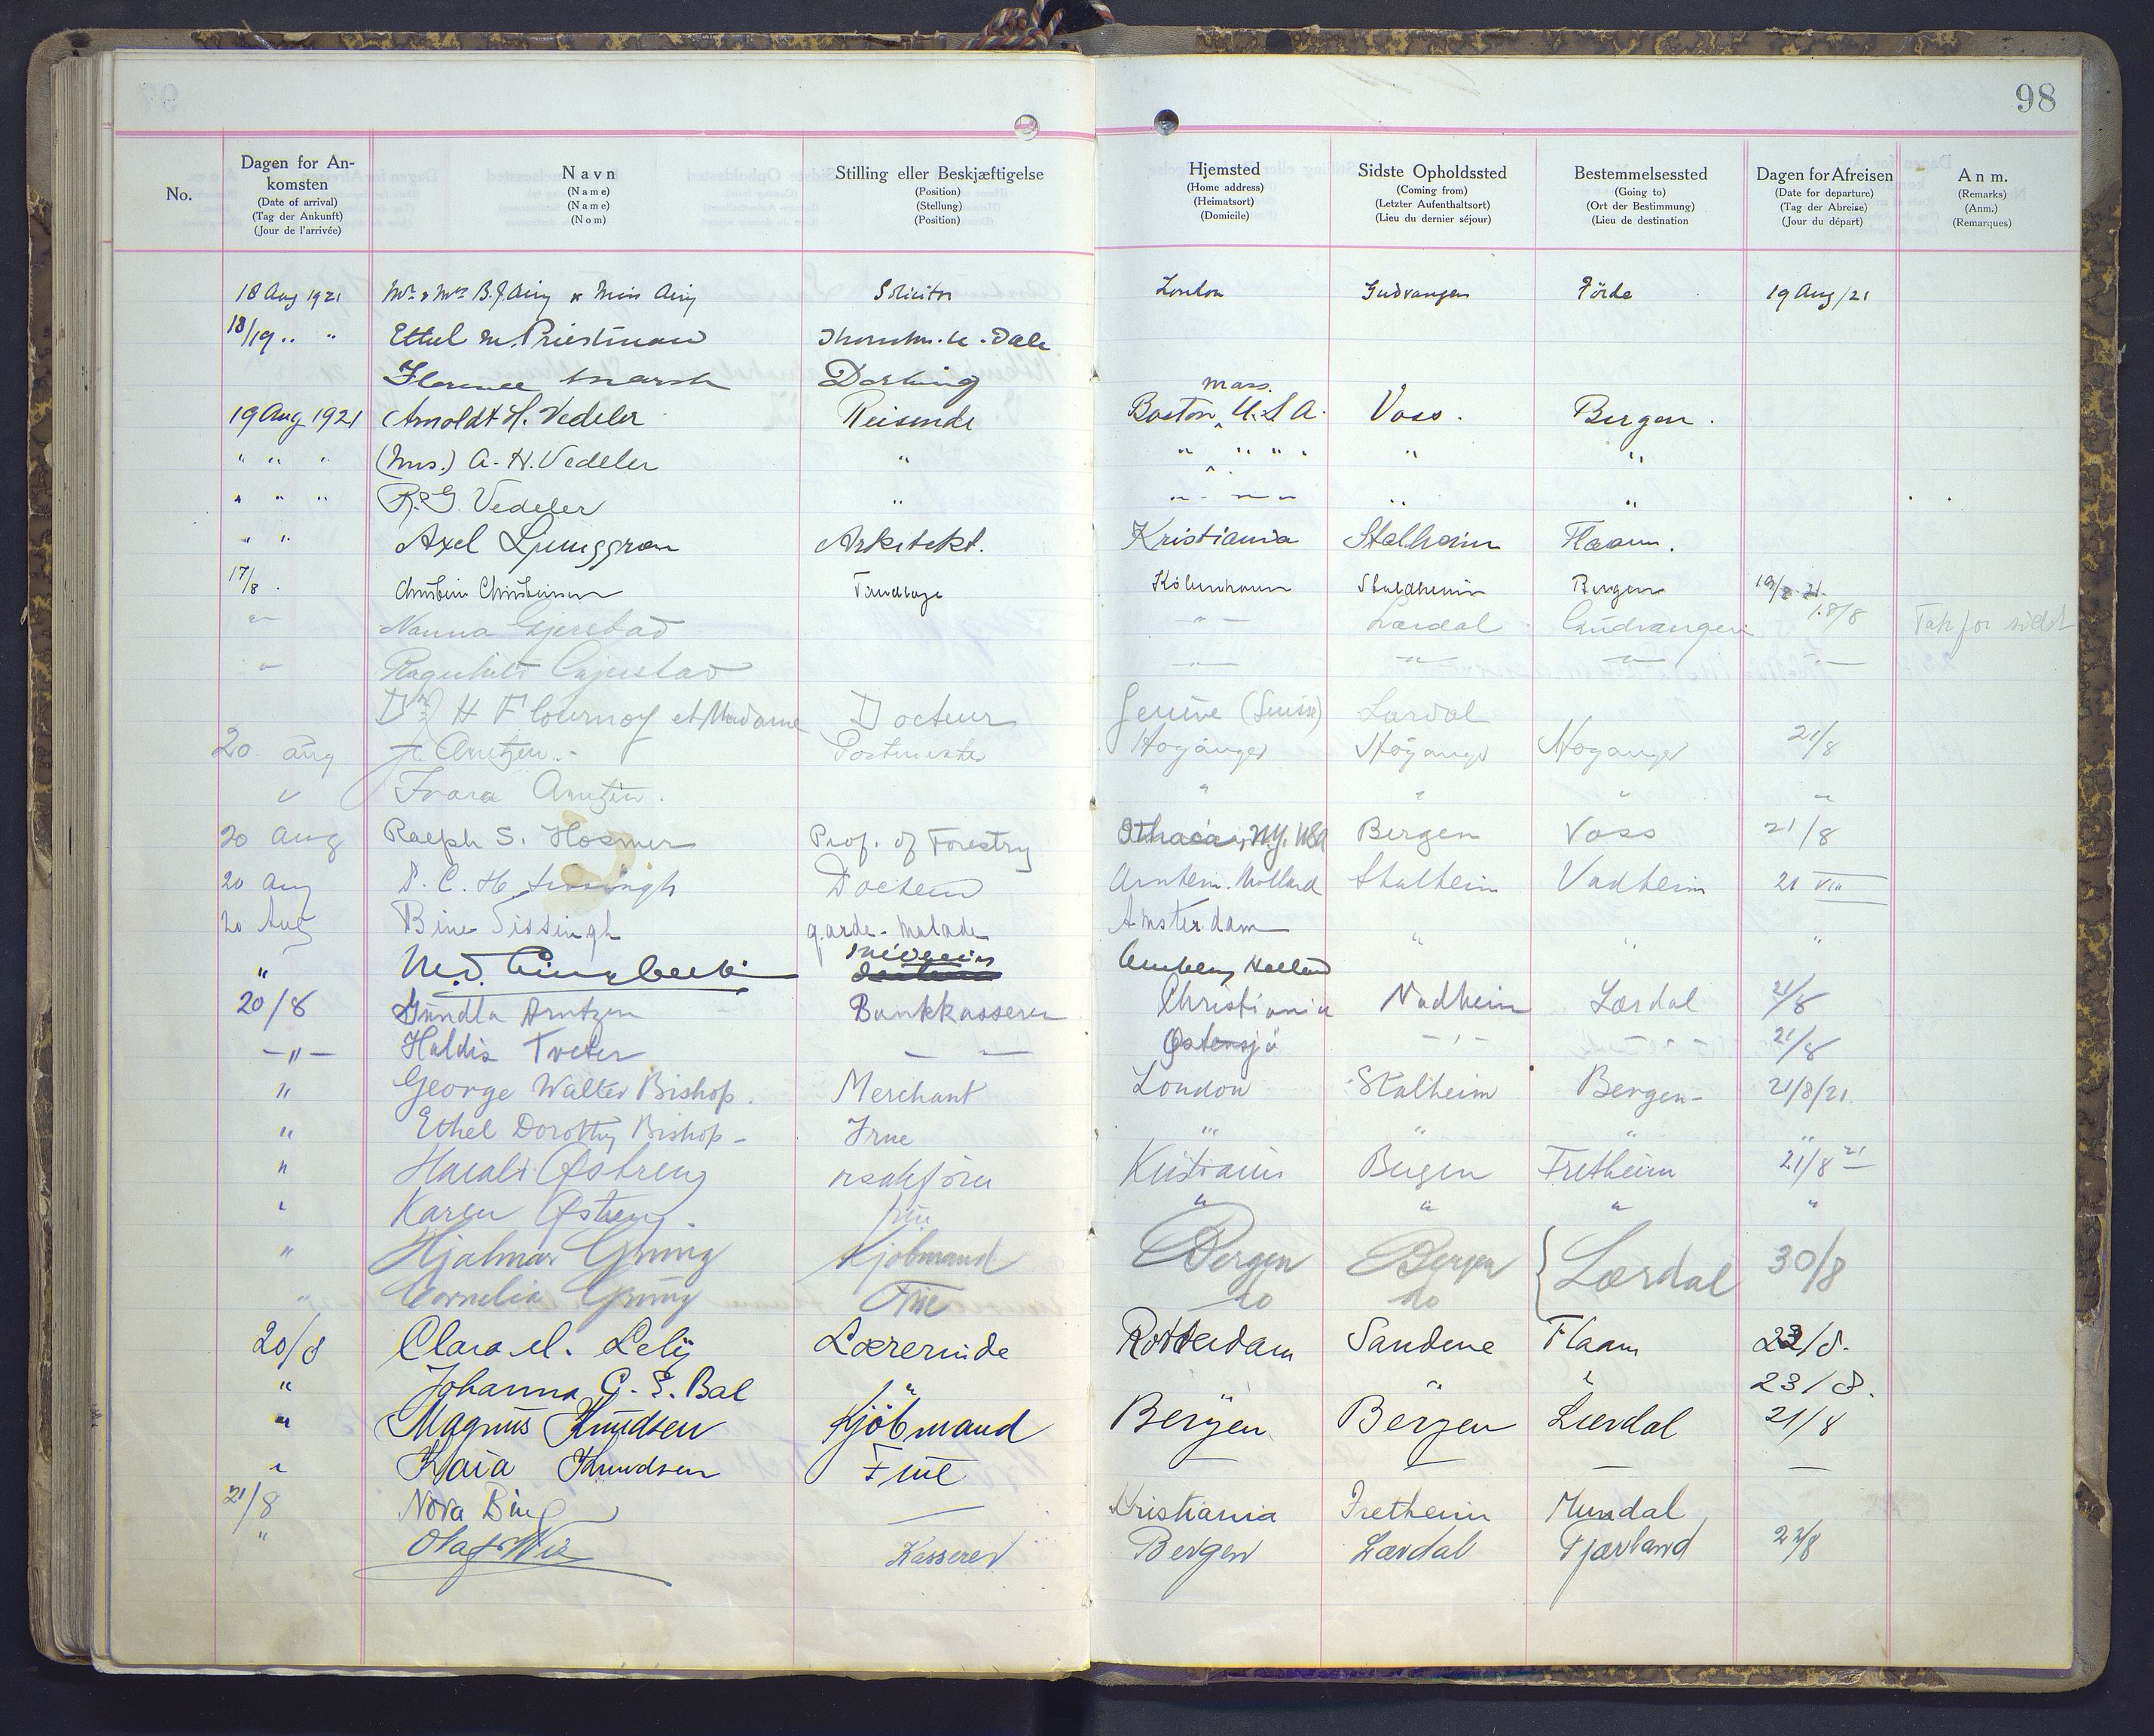 98
No.
Dagen for An-
komsten
(Date of arrival)
(Tag der Ankunft)
(Jour de l'arrivée)
Navn
(Name)
(Name)
(Nom)
Stilling eller Beskjæftigelse
(Position)
(Stellung)
(Position)
Hjemsted
(Home address)
(Heimatsort)
(Domicile)
Sidste Opholdssted
(Coming from)
(Letzter Aufenthaltsort)
(Lieu du dernier séjour)
Bestemmelsessted
(Going to)
(Ort der Bestimmung)
(Lieu de destination
Dagen for Afreisen
(Date for departure)
(Tag der Abreise)
(Jour du départ)
Anm.
(Remarks)
(Anm.)
(Remarques)
18 Aug 1921 Mr & Mrs B.J. Airy & Miss Airy Solicitor London Gudvangen Förde 19 Aug/21
18/19 " " Ethel M. Priestman Dale
Florence Marsh Dorking
19 Aug 1921 Arnoldt H. Vedeler Reisende Boston, Mass. U.S.A. Voss. Bergen.
" " " (Mrs.) A. H. Vedeler " " " " " " "
" " " R.G. Vedeler " " " " " "
" " Axel Ljunggren Arkitekt. Kristiania Stalheim Flaam.
17/8. Christian Christensen Tandlæge Köbenhavn Staldheim Bergen 19/8 21.
" Nanna Gjerstad " Lærdal Gudvangen 18/8 Tak for sidst
" Ragnhild Gjerstad " " " "
Dr H Flournoy et Madame Docteur Genève (Suisse) Lærdal
20 aug Arntzen Postmester Höyanger Höyanger Höyanger 21/8
" Arntzen. " " " "
20 Aug Ralph S. Hosmer Prof. of Forestry Ithaca, N.Y. USA Bergen Voss 21/8
20 Aug D. C. H. Sissingh Arnhem. Holland Stalheim Vadheim 21 VIII
20 Aug Bine Sissingh garde-malade Amsterdam " " "
" Holland
20/8 Gundla Arntzen Bankkasserer Christiania Vadheim Lærdal 21/8
— " — Haldis Tveter — — Østensjø — " — — " — 21/8
" George Walter Bishop. Merchant London Stalheim Bergen- 21/8/21.
" Ethel Dorothy Bishop- Frue " " " "
" Harald Østreng o.r.sakfører Kristiania Bergen Fretheim 21/8 21
" Karen Østreng. fru. " " " "
" Hjalmar Grung Kjöbmand Bergen Bergen { Lærdal 30/8
" Cornelia Grung Frue do do
20/8 Clara M. Lelij Lærerinde Rotterdam Sandene Flaam 23/8.
" Johanna C. S. Bal " " " 23/8.
" Magnus Knudsen Kjöbmand Bergen Bergen Lærdal 21/8
" Kaia Knudsen Frue — — — —
21/8 Nora Bing — Kristiania Fretheim Mundal
" Olaf Wie Kasserer Bergen Lærdal Fjærland 22/8